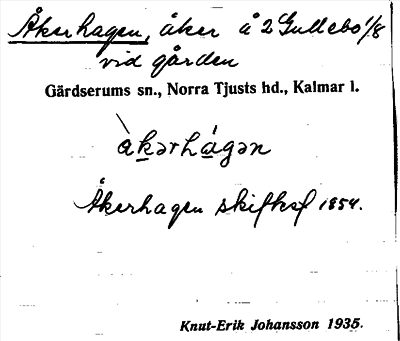 Åkerhagen, åker å 2 Gullebo 1/8
vid gården
Gärdserums sn., Norra Tjusts hd., Kalmar l.
åkərhágən
Åkerhagen skifksf 1854.
Knut-Erik Johansson 1935.